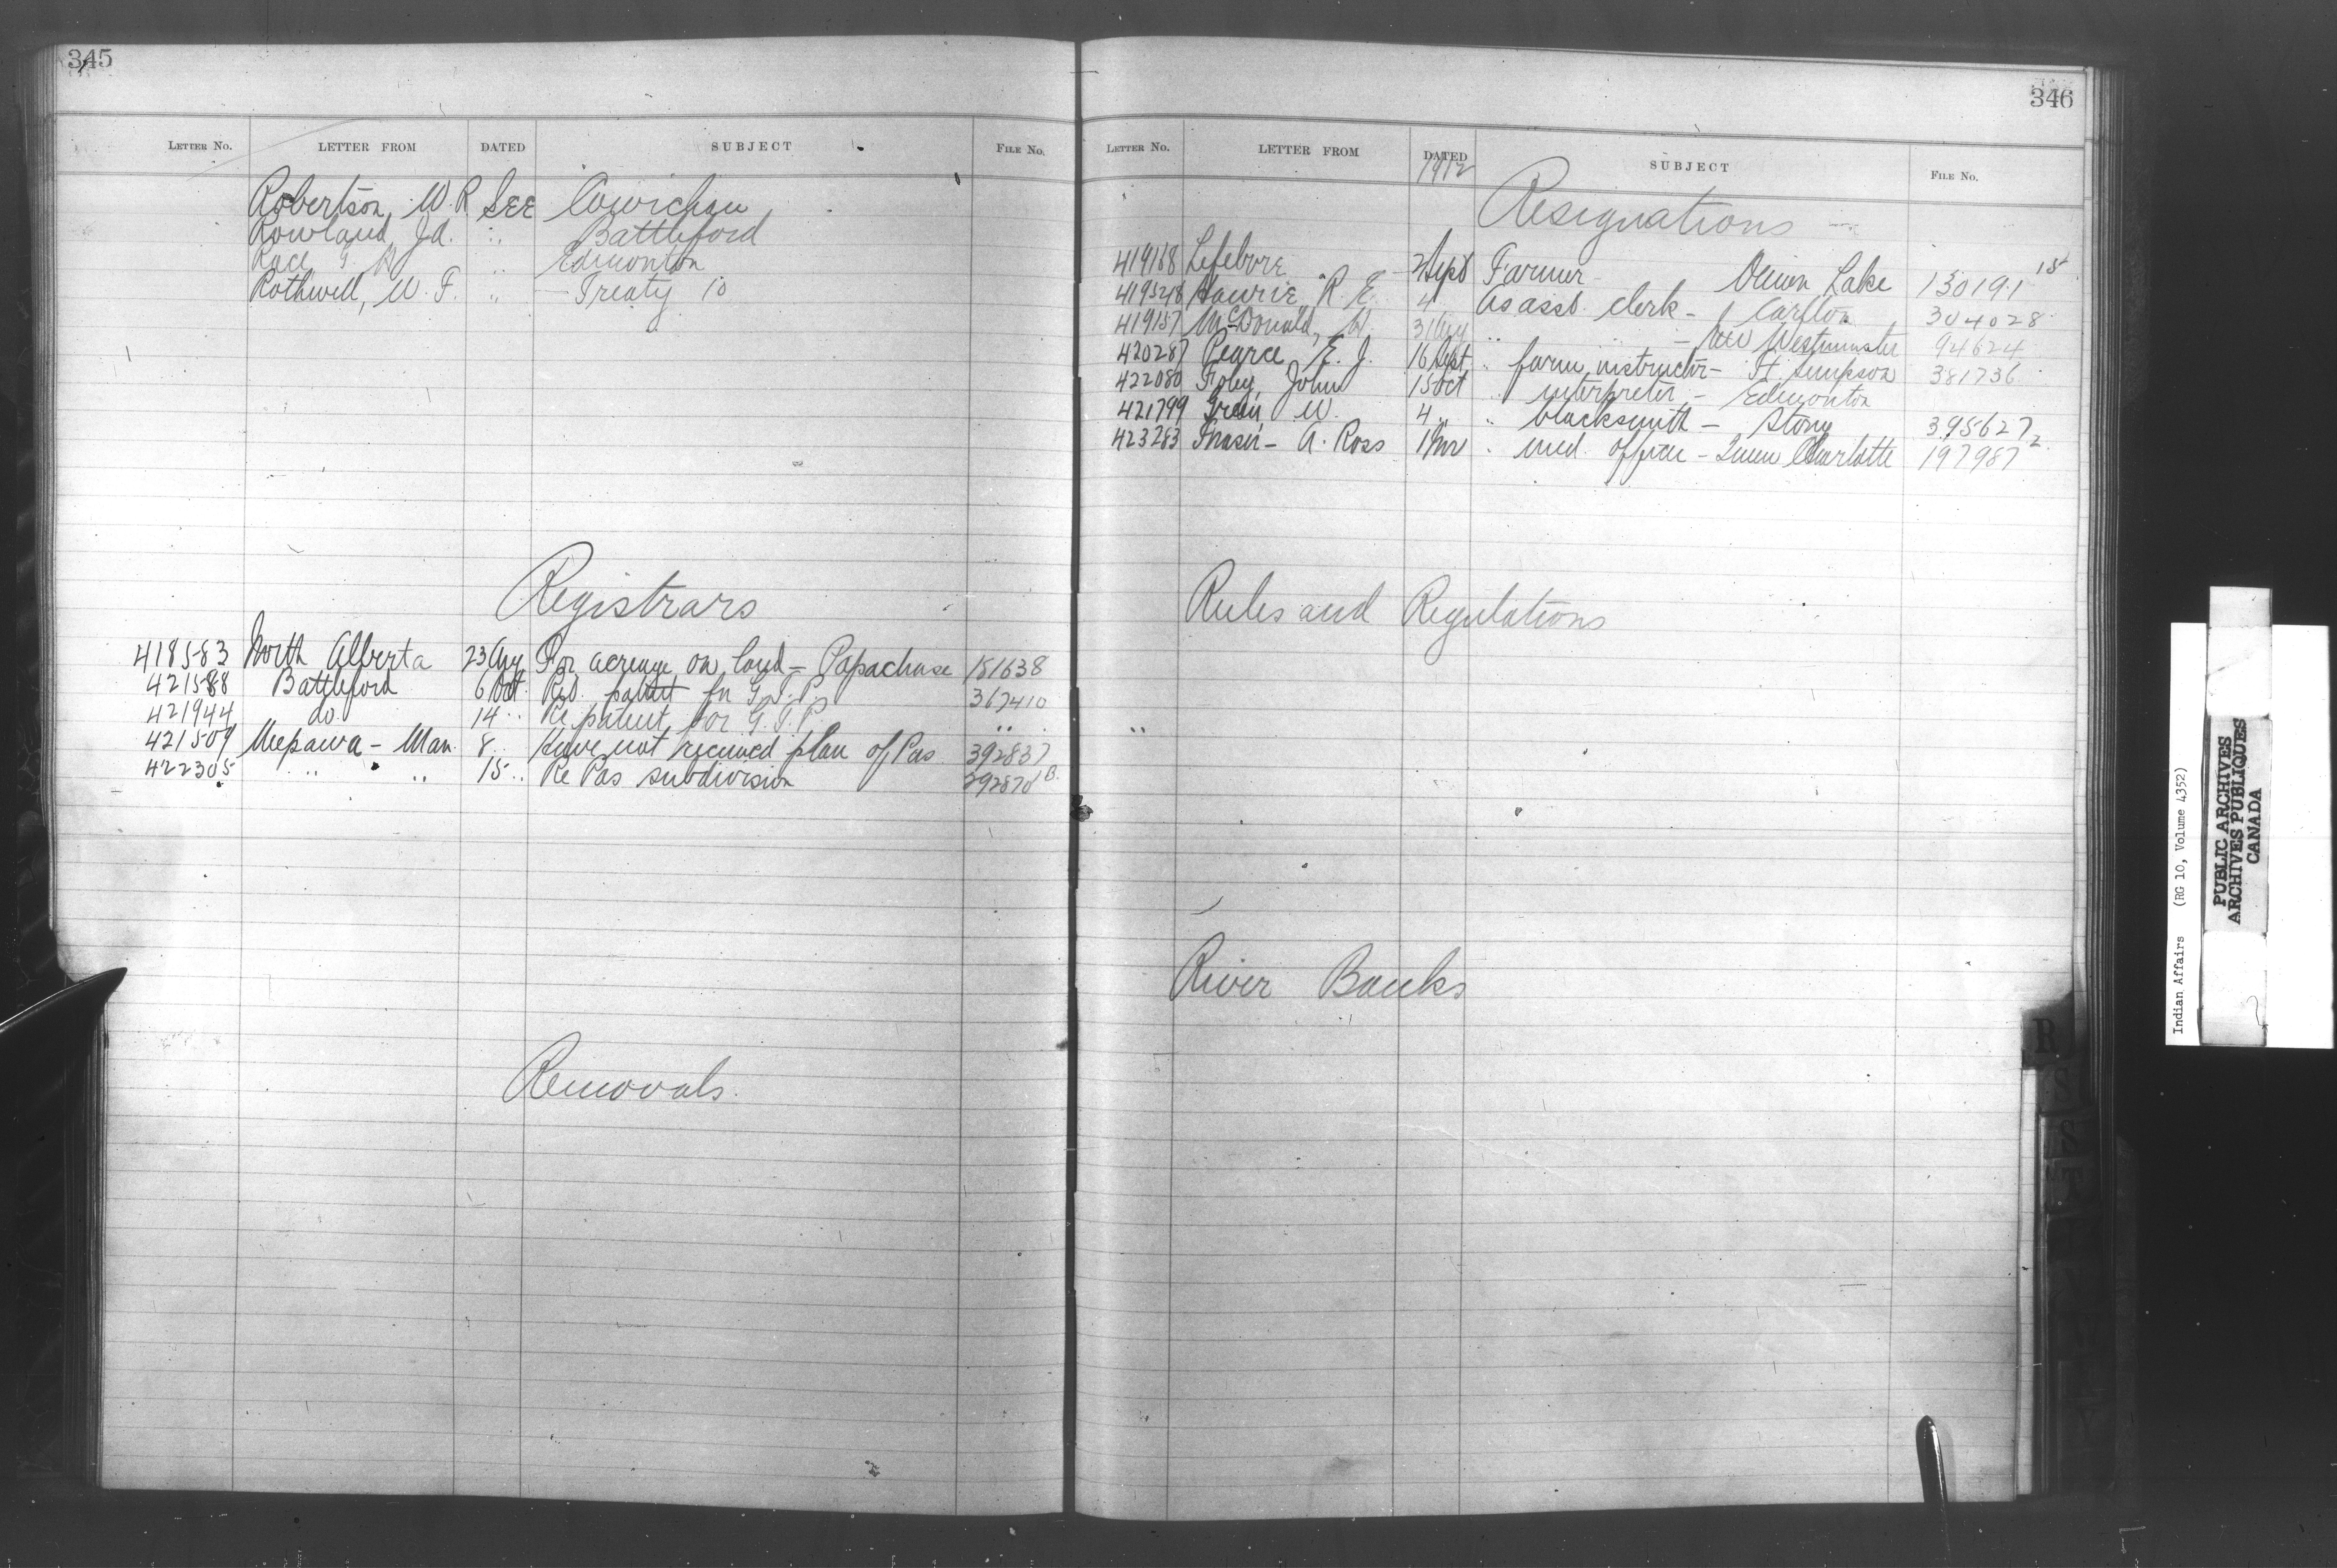 345
LETTER No. LETTER FROM DATED SUBJECT FILE No.
Robertson, W. R. SEE Cowichan
Rowland, Jd. " Battleford
Race G. R. " Edmonton
Rothwell, W. F. " — Treaty 10
Registrars
418583 North Alberta 23 Aug For acreage on land — Papachase 181638
421588 Battleford 6 Oct. patent for G.T.P. 367410
421944 do. 14 " Re patent for G.T.P. "
421509 Neepawa — Man. 8 " Have not received plan of Pas 392837
422305 " " 15 " Re Pas subdivision 292870 B.
Removals.
346
LETTER No. LETTER FROM DATED SUBJECT FILE No.
1912
Resignations —
419168 Lefebvre 2 Sept Farmer — Onion Lake 130191 15
419548 Hourie, R. E. 4 As asst. clerk — Carlton 304028
419157 McDonald, 31 Aug " " — New Westminster 94624
420287 Pearce E. J. 16 Sept. " farm instructor — Ft. Simpson 381736
422080 Foley, John 15 Oct " interpreter — Edmonton
421799 Green, W. 4 " " blacksmith — Stony 395627
423283 Fraser — A. Ross 1 Nov " med. officer — Queen Charlotte 197987 2
Rules and Regulations
"
River Banks
R
S
S
T
Indian Affairs (RG 10, Volume 4352)
PUBLIC ARCHIVES
ARCHIVES PUBLIQUES
CANADA